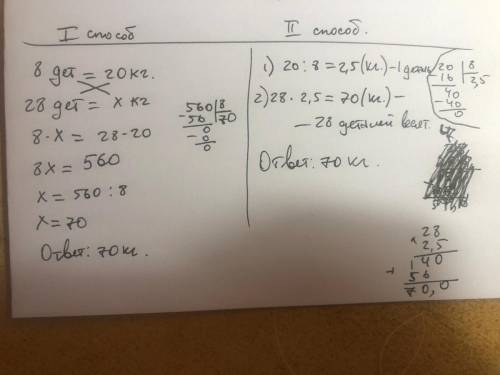 I способ
8 дет = 20 кг.
28 дет = x кг
8 · x = 28 · 20
8x = 560
x = 560 : 8
x = 70
Ответ: 70 кг.
560 | 8
- 56 | 70
0
- 0
0
II способ.
1) 20 : 8 = 2,5 (кг.) - 1 деталь
2) 28 · 2,5 = 70 (кг.) -
- 28 деталей весят.
Ответ: 70 кг.
20 | 8
- 16 | 2,5
40
- 40
0
28
× 2,5
1 40
+ 56
70,0